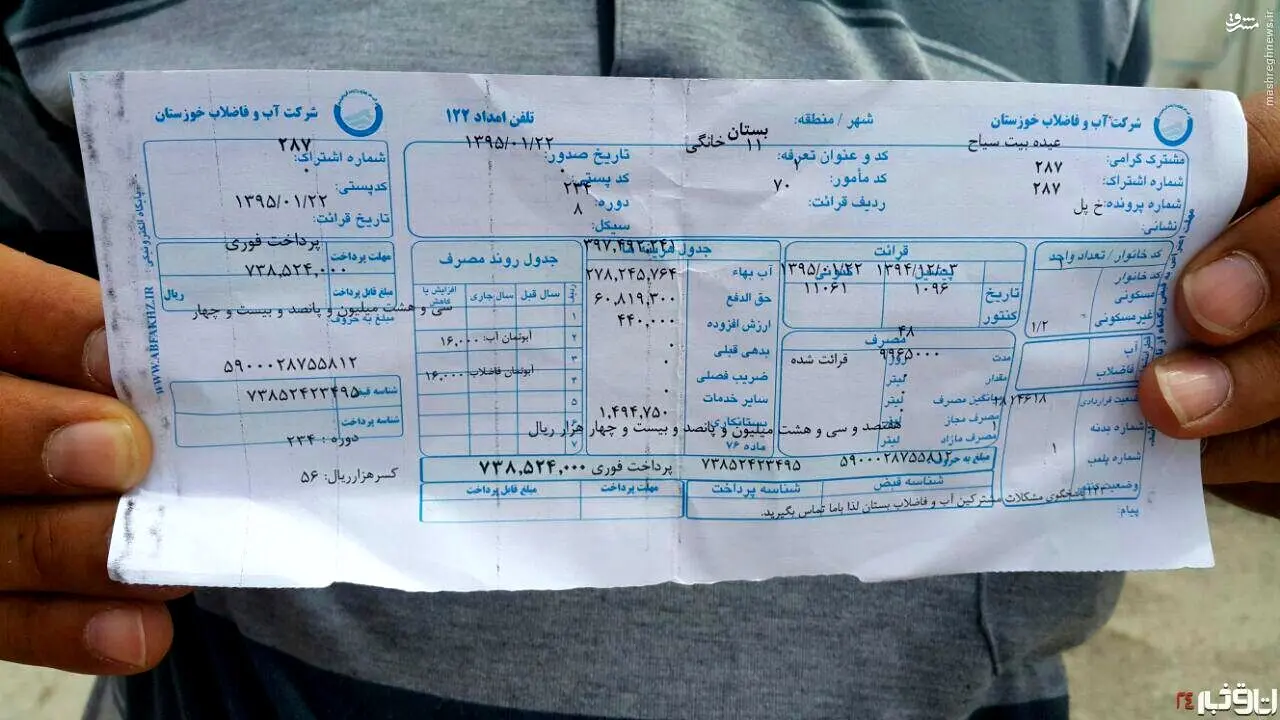 مشرق
mashreghnews.ir
شرکت آب و فاضلاب خوزستان
تلفن امداد ۱۲۲
شهر / منطقه: بستان
شرکت آب و فاضلاب خوزستان
مشترک گرامی: عبده بیت سیاح
شماره اشتراک: ۲۸۷
شماره پرونده: ۲۸۷
نشانی: خ پل
کد و عنوان تعرفه: ۱۱ خانگی
کد مأمور: ۱
ردیف قرائت: ۷۰
تاریخ صدور: ۱۳۹۵/۰۱/۲۲
کد پستی: ۰
دوره: ۲۳۴
سیکل: ۸
شماره اشتراک: ۲۸۷
کدپستی: ۰
تاریخ قرائت: ۱۳۹۵/۰۱/۲۲
کد خانوار / تعداد واحد
کد خانوار
مسکونی ۱
غیرمسکونی
۱/۲
آب
فاضلاب
وضعیت قراردادی
شماره بدنه
شماره پلمب ۱
پیام:
قرائت
تاریخ ۱۳۹۴/۱۲/۰۳
کنتور ۱۰۹۶ ۱۱۰۶۱
مصرف
مدت ۴۸ روز
مقدار ۹۹۶۵۰۰۰ لیتر قرائت شده
میانگین مصرف لیتر
مصرف مجاز لیتر
مصرف مازاد لیتر
آب بهاء ۲۷۸,۲۴۵,۷۶۴
حق الدفع ۶۰,۸۱۹,۳۰۰
ارزش افزوده ۴۴۰,۰۰۰
بدهی قبلی ۰
ضریب فصلی ۰
سایر خدمات ۰
بستانکاری
۱,۴۹۴,۷۵۰
ماده ۷۶
جدول روند مصرف
ردیف سال قبل سال جاری افزایش یا کاهش
۱
۲ آبونمان آب: ۱۶,۰۰۰
۳
۴ آبونمان فاضلاب: ۱۶,۰۰۰
۵
۷
هفتصد و سی و هشت میلیون و پانصد و بیست و چهار هزار ریال
مبلغ به حروف
۵۹۰۰۰۲۸۷۵۵۸۱۲ ۷۳۸۵۲۴۲۳۴۹۵ پرداخت فوری ۷۳۸,۵۲۴,۰۰۰
شناسه قبض شناسه پرداخت مهلت پرداخت مبلغ قابل پرداخت
مشکلات مشترکین آب و فاضلاب بستان لذا باما تماس بگیرید.
مهلت پرداخت پرداخت فوری
مبلغ قابل پرداخت ۷۳۸,۵۲۴,۰۰۰ ریال
مبلغ به حروف: سی و هشت میلیون و پانصد و بیست و چهار
۵۹۰۰۰۲۸۷۵۵۸۱۲
شناسه قبض
۷۳۸۵۲۴۲۳۴۹۵
شناسه پرداخت
دوره : ۲۳۴
کسرهزارریال: ۵۶
WWW.ABFAKHZ.IR پایگاه الکترونیکی
اتاق خبر ۲۴